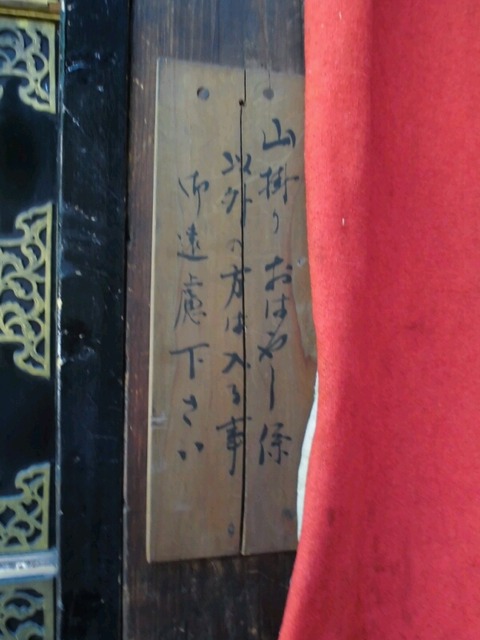 山掛りおはやし係
以外の方は入る事
御遠慮下さい